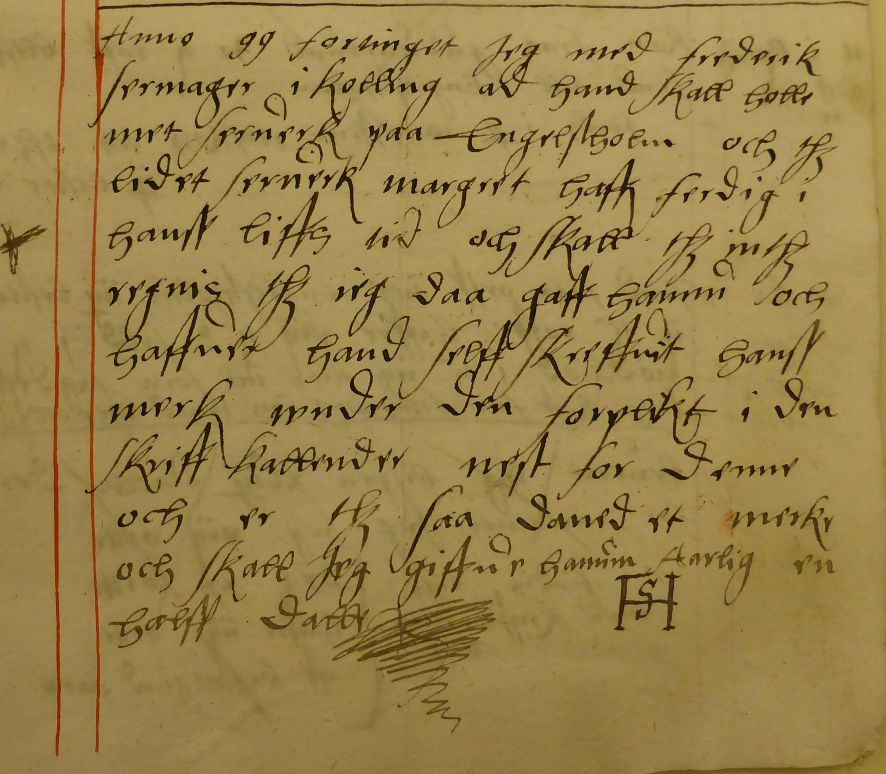 Anno 99 fortinget Jeg med frederik
sermager i Kolling ad hand skall holle
met seruerk paa Engelsholm och thz
lidet seruerk margret haff ferdig i
hanss liffs tid och skall thz inthz
regnis thz ieg daa gaff hannu och
haffuer hand selff skreffuit hanss
merk wnder den forplikt i den
skriff kallender nest for denne
och er thz saa daned et merke
och skall Jeg giffue hanum Aarlig en
halff dalle
HS